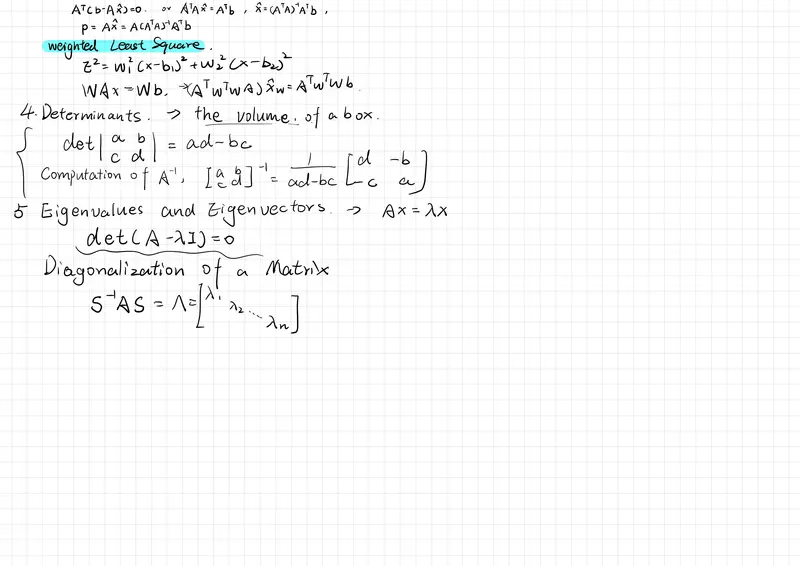 Aᵀ(b-Ax̂)=0. or AᵀAx̂=Aᵀb, x̂=(AᵀA)⁻¹Aᵀb,
p = Ax̂ = A(AᵀA)⁻¹Aᵀb
weighted Least Square.
E²= w₁²(x-b₁)²+w₂²(x-b₂)²
WAx=Wb, →(AᵀWᵀWA)x̂w=AᵀWᵀWb.
4. Determinants. → the volume. of a box.
det|a b c d| = ad-bc
Computation of A⁻¹, [a b c d]⁻¹ = 1/ad-bc [d -b -c a]
5 Eigenvalues and Eigenvectors. → Ax=λx
det(A-λI)=0
Diagonalization of a Matrix
S⁻¹AS = Λ=[λ₁ λ₂ ... λn]